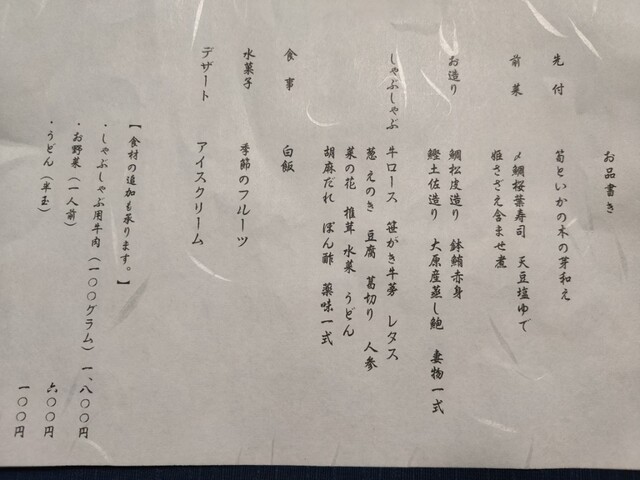 お品書き
先付 筍といかの木の芽和え
前菜 〆鯛桜葉寿司 天豆塩ゆで
姫さざえ含ませ煮
お造り 鯛松皮造り 鉢鮪赤身
鰹土佐造り 大原産蒸し鮑 妻物一式
しゃぶしゃぶ 牛ロース 笹がき牛蒡 レタス
葱 えのき 豆腐 葛切り 人参
菜の花 椎茸 水菜 うどん
胡麻だれ ぽん酢 薬味一式
食事 白飯
水菓子 季節のフルーツ
デザート アイスクリーム
【食材の追加も承ります。】
・しゃぶしゃぶ用牛肉(一〇〇グラム)一、八〇〇円
・お野菜(一人前) 六〇〇円
・うどん(半玉) 一〇〇円